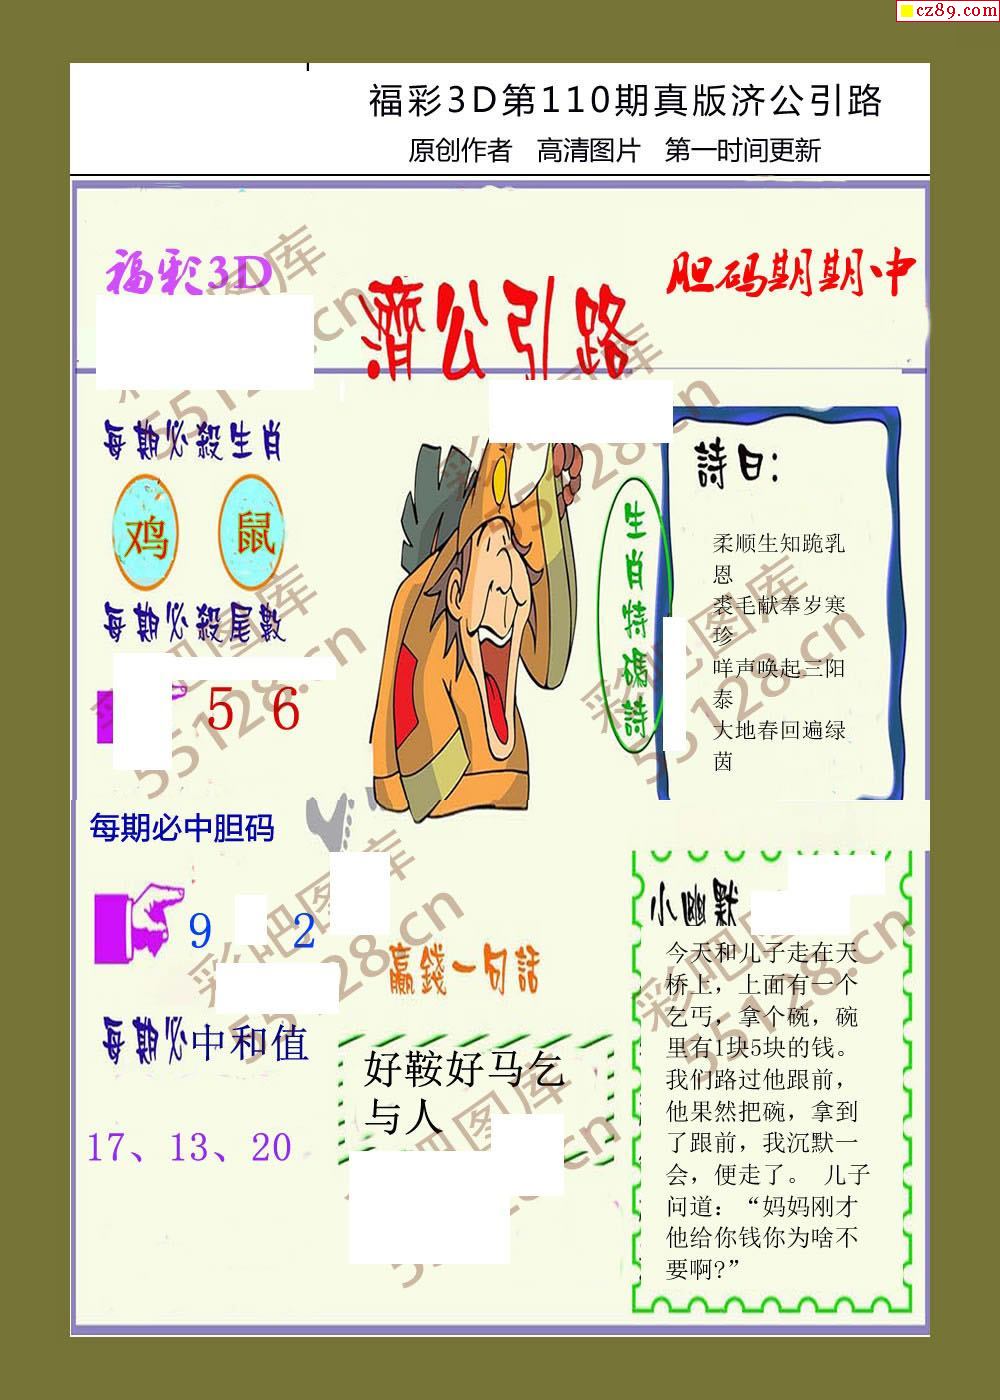 cz89.com
福彩3D第110期真版济公引路
原创作者 高清图片 第一时间更新
福彩3D
濟公引路
胆码期期中
每期必殺生肖
鸡 鼠
每期必殺尾數
5 6
生肖特碼詩
詩曰:
柔顺生知跪乳
恩
裘毛献奉岁寒
珍
咩声唤起三阳
泰
大地春回遍绿
茵
每期必中胆码
9 2
每期必中和值
17、13、20
贏錢一句話
好鞍好马乞
与人
小幽默
今天和儿子走在天
桥上，上面有一个
乞丐，拿个碗，碗
里有1块5块的钱。
我们路过他跟前，
他果然把碗，拿到
了跟前，我沉默一
会，便走了。 儿子
问道：“妈妈刚才
他给你钱你为啥不
要啊?”
彩吧图库
55128.cn
彩吧图库
55128.cn
彩吧图库
55128.cn
彩吧图库
55128.cn
彩吧图库
55128.cn